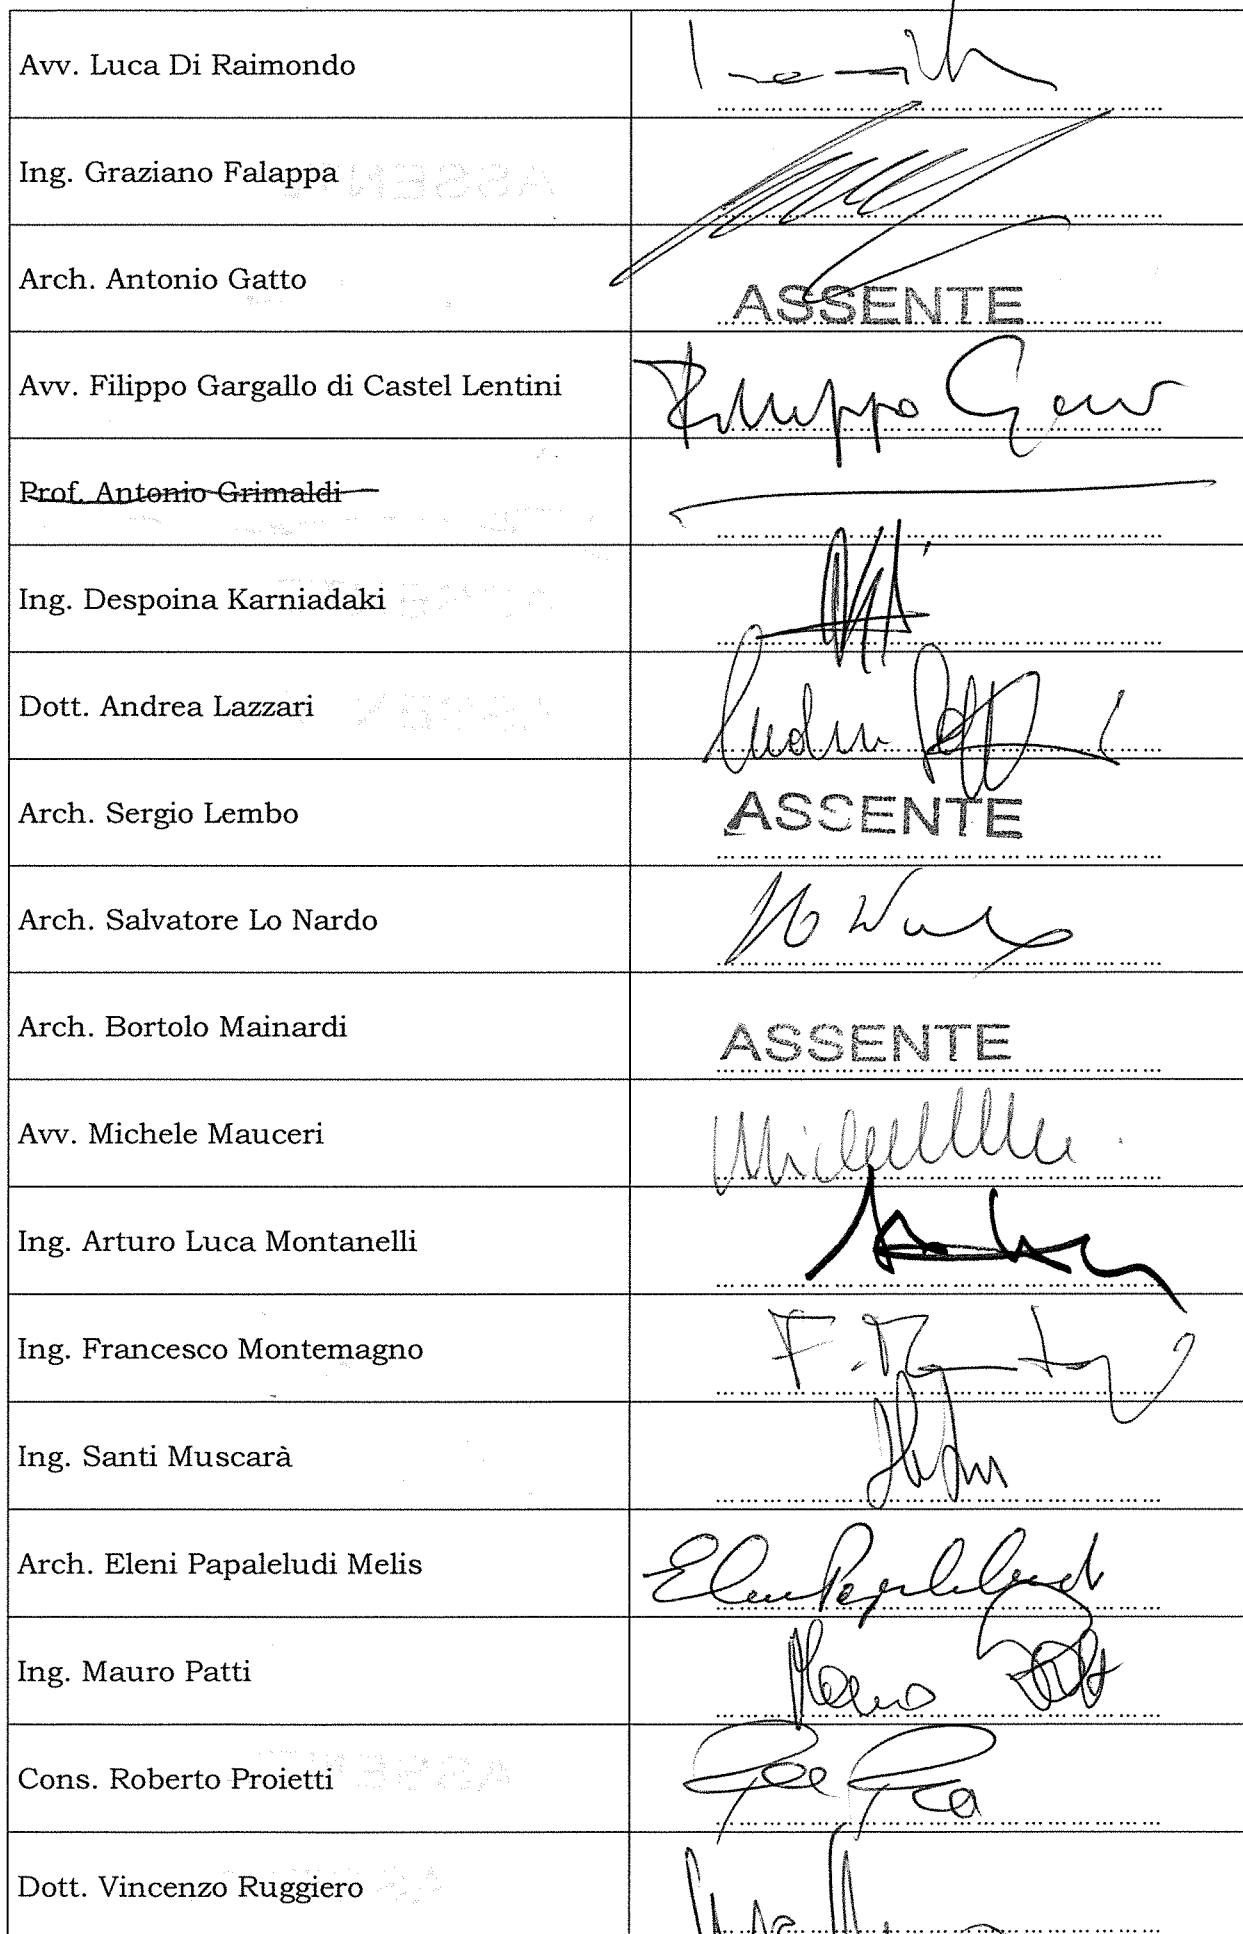 Avv. Luca Di Raimondo
Ing. Graziano Falappa
Arch. Antonio Gatto
ASSENTE
Avv. Filippo Gargallo di Castel Lentini
Filippo
Prof. Antonio Grimaldi
Ing. Despoina Karniadaki
Dott. Andrea Lazzari
Arch. Sergio Lembo
ASSENTE
Arch. Salvatore Lo Nardo
Arch. Bortolo Mainardi
ASSENTE
Avv. Michele Mauceri
Ing. Arturo Luca Montanelli
Ing. Francesco Montemagno
Ing. Santi Muscarà
Arch. Eleni Papaleludi Melis
Ing. Mauro Patti
Cons. Roberto Proietti
Dott. Vincenzo Ruggiero